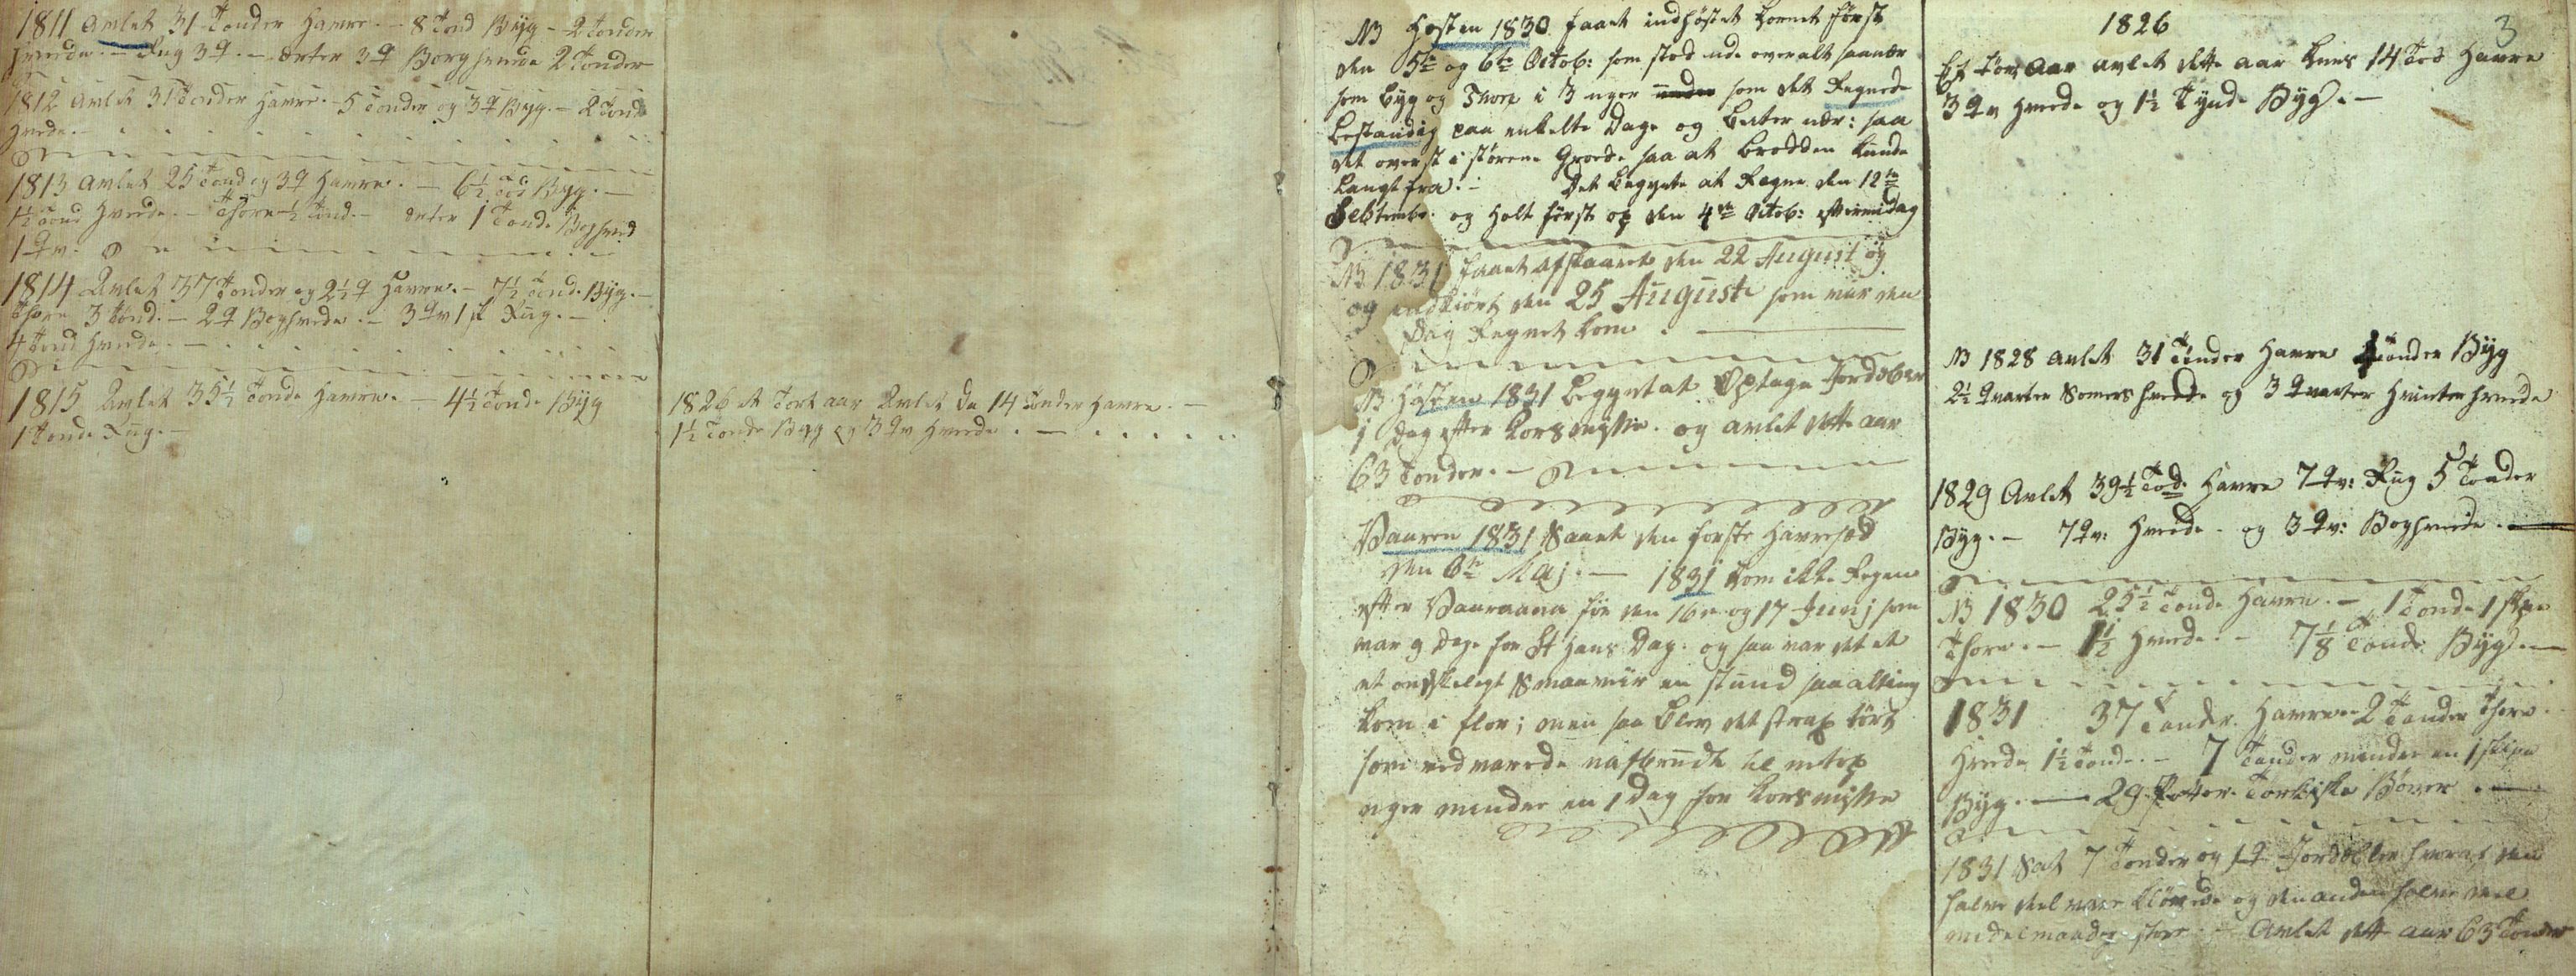 1811 Avlet 31 Tønder Havre. - 8 Tønd Byg - 2 Tønder
Hvede. - Rug 3 q. - Erter 3 q Boghvede 2 Tønder
1812 Avlet 31 Tønder Havre. - 5 Tønder og 3 q Byg. - 2 Tønd
Hvede. -
1813 Avlet 25 Tønd og 3 q Havre. - 6 1/2 Tød Byg. -
1 1/2 Tønd Hvede. - Thore 1/2 Tønd. - Erter 1 Tønde Boghved
1 qv.
1814 Avlet 37 Tønder og 2 1/2 q Havre. - 7 1/2 Tønd. Byg. -
Thore 3 Tønd. - 2 q Boghvede. - 3 qv 1 sk Rug. -
4 Tønd Hvede. -
1815 Avlet 35 1/2 Tønde Havre. - 4 1/2 Tønde Byg
1 Tønde Rug. -
1826 et Tørt aar Avlet da 14 Tønder Havre. -
1 1/2 Tønde Byg og 3 qv Hvede. -
NB Høsten 1830 faaet indhøstet Kornet først
den 5te og 6te Octob: som stod ude overalt saavær
som Byg og Thore i 3 uger som det Regnede
Bestandig paa enkelte Dage og nær: saa
det øverst i størene Groede saa at Brodden kunde
Langt fra. - Det begynte at Regne den 12te
Sebtembr. og holt først op den 4de Octob: Eftermidag
NB 1831 faaet afskaaret den 22 August og
og indkiørt den 25 Auguste som var den
Dag Regnet kom. -
NB Høsten 1831 Begyntat Optage Jordæbler
1 Dag efter Korsmisse. og avlet dette aar
63 Tønder. -
Vaaren 1831 Saaet den første Havresæd
den 6te Maj. - 1831 kom ikke Regen
efter Vaaraana før den 16n og 17 Junj som
var 9 Dage før St Hans Dag. og saa var det et
et ønskeligt en stund saa alting
kom i flor; men saa Blev det strax tørt
som vedvarede uafbrudt til
uger mindre en 1 Dag før Korsmisse
3
1826
Et tørt Aar avlet dette aar kuns 14 Tød Havre
3 qv Hvede og 1 1/2 Tynde Byg. -
NB 1828 avlet 31 Tønder Havre 4 Tønder Byg
2 1/2 Qvarter Somershvede og 3 Qvarter Hvinterhvede
1829 Avlet 39 1/2 Tød. Havre 7 qv: Rug 5 Tønder
Byg. - 7 qv: Hvede - og 3 qv: Boghvede. -
NB 1830 25 1/2 Tønde Havre. - 1 Tønde 1 skpe
Thore. - 1 1/2 Hvede. - 7 1/8 Tønde Byg. -
1831 37 Tønde. Havre - 2 Tønder Thore.
Hvede 1 1/2 Tønde. - 7 Tønder mindre en 1 skipe
Byg. - 29 Potter Tørkiske Bøner. -
1831 Sat 7 Tønder og 1 q Jordebler hvoraf den
halve del var kløvede og den anden halve deel
midelmaadig store - Avlet dette aar 63 Tønder